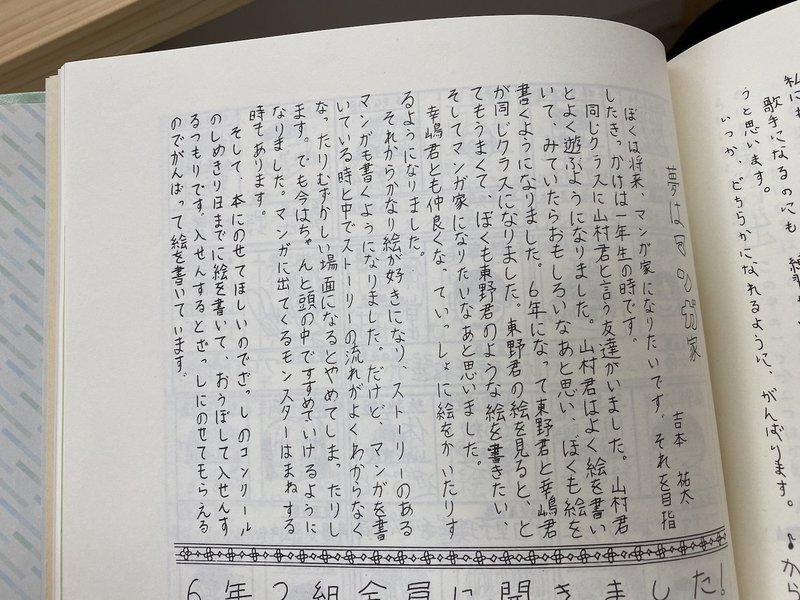 私にも
歌手になるのにも 練習
うと思います。
いつか、どちらかになれるように、がんばります。♪
から
夢はマンガ家 吉本 祐太
ぼくは将来、マンガ家になりたいです。それを目指
したきっかけは一年生の時です。
同じクラスに山村君と言う友達がいました。山村君
とよく遊ぶようになりました。山村君はよく絵を書い
いて、みていたらおもしろいなあと思い、ぼくも絵を
書くようになりました。6年になって東野君と幸嶋君
が同じクラスになりました。東野君の絵を見ると、と
てもうまくて、ぼくも東野君のような絵を書きたい、
そしてマンガ家になりたいなあと思いました。
幸嶋君とも仲良くな、ていっしょに絵をかいたりす
るようになりました。
それからかなり絵が好きになり、ストーリーのある
マンガも書くようになりました。だけど、マンガを書
いている時と中でストーリーの流れがよくわからなく
なったりむずかしい場面になるとやめてしまったりし
ます。でも今はちゃんと頭の中ですすめていけるように
なりました。マンガに出てくるモンスターはまねする
時もあります。
そして、本にのせてほしいのでざっしのコンクール
のしめきり日までに絵を書いて、おうぼして入せんす
るつもりです。入せんするとざっしにのせてもらえる
のでがんばって絵を書いています。
6年2組全員に聞きました!